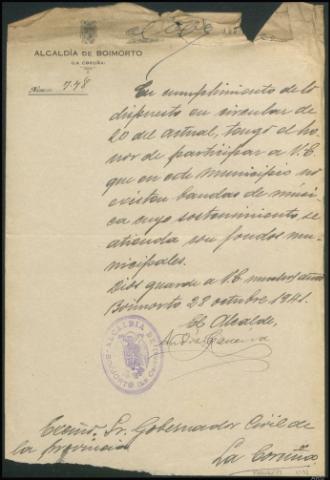 ALCALDÍA DE BOIMORTO
(LA CORUÑA)
Núm. 748
En cumplimiento de lo
dispuesto en circular de
20 del actual, tengo el ho-
nor de participar a V.E.
que en este Municipio no
existen bandas de músi-
ca cuyo sostenimiento se
atienda con fondos mu-
nicipales.
Dios guarde a V.E. muchos años
Boimorto 28 octubre 1941.
El Alcalde,
ALCALDIA DE
BOIMORTO (La Coruña)
Excmo. Sr. Gobernador Civil de
la provincia
La Coruña